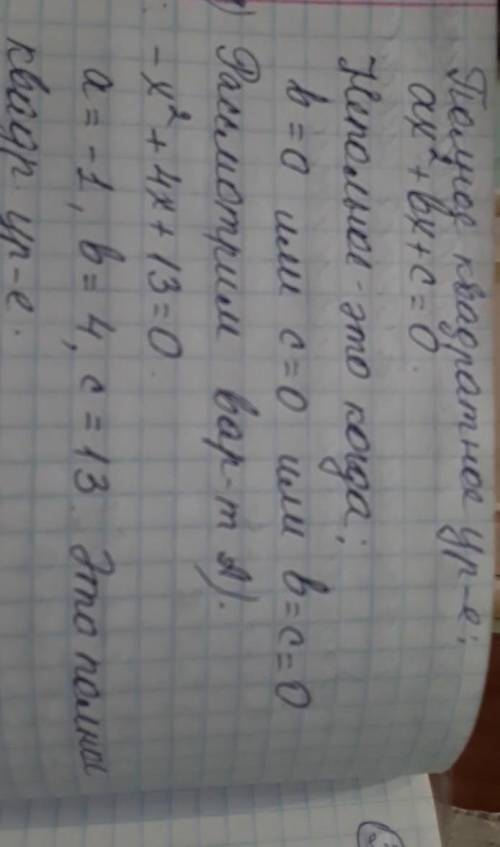 Полное квадратное ур-е;
ax²+bx+c=0.
Неполное - это когда;
b=0 или c=0 или b=c=0
Рассмотрим вар-т А).
-x²+4x+13=0.
a=-1, b=4, c=13. Это полный
квадр. ур-е.